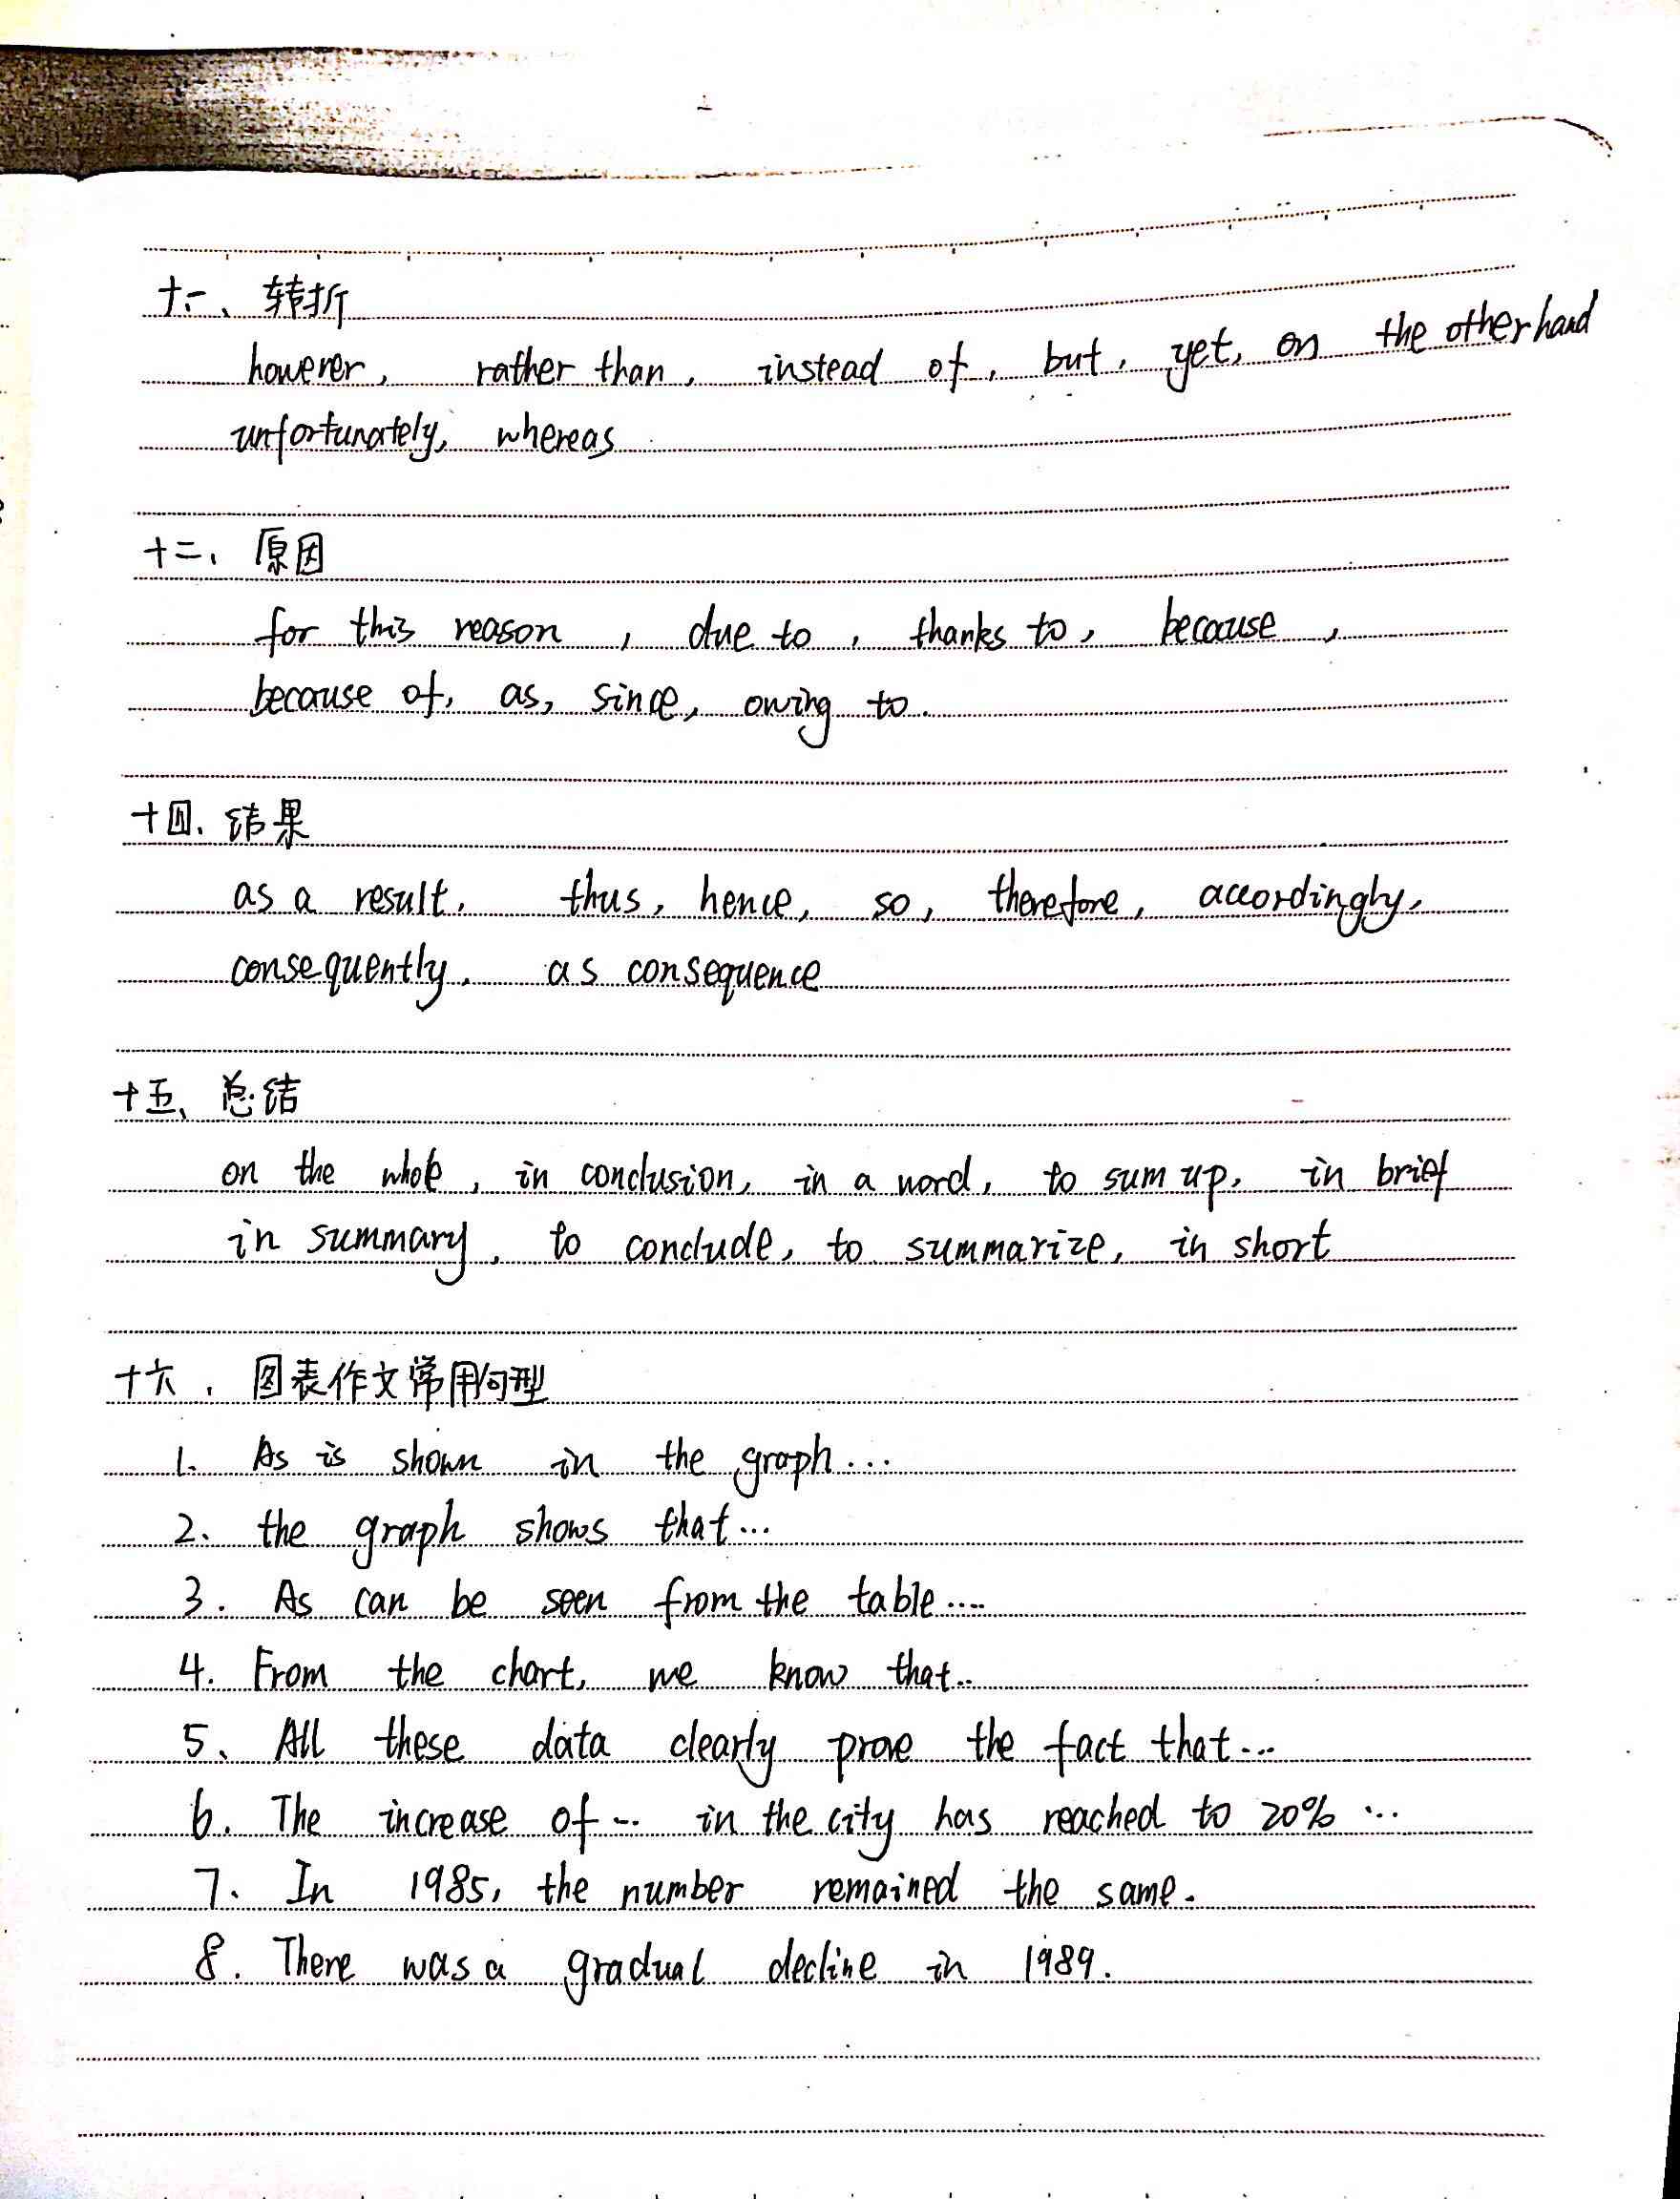 十一、转折
however, rather than, instead of, but, yet, on the other hand
unfortunately, whereas
十二、原因
for this reason, due to, thanks to, because,
because of, as, since, owing to.
十四、结果
as a result, thus, hence, so, therefore, accordingly,
consequently, as consequence
十五、总结
on the whole, in conclusion, in a word, to sum up, in brief
in summary, to conclude, to summarize, in short
十六、图表作文常用句型
1. As is shown in the graph...
2. the graph shows that...
3. As can be seen from the table....
4. From the chart, we know that..
5、All these data clearly prove the fact that...
6. The increase of... in the city has reached to 20% ...
7. In 1985, the number remained the same.
8. There was a gradual decline in 1989.